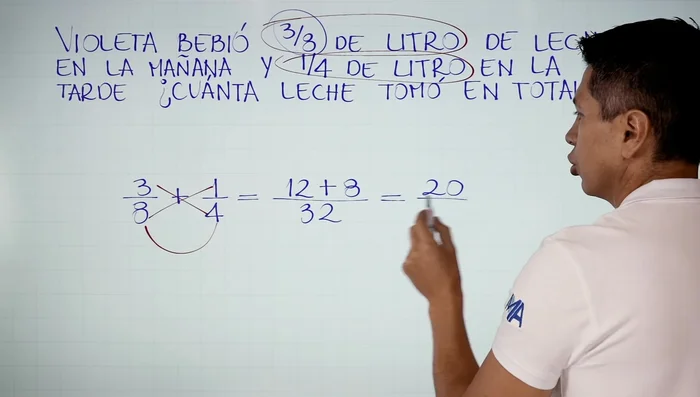 VIOLETA BEBIÓ 3/8 DE LITRO DE LEC
EN LA MAÑANA Y 1/4 DE LITRO EN LA
TARDE ¿CUÁNTA LECHE TOMÓ EN TOTAL
3/8 + 1/4 = 12+8/32 = 20
MA